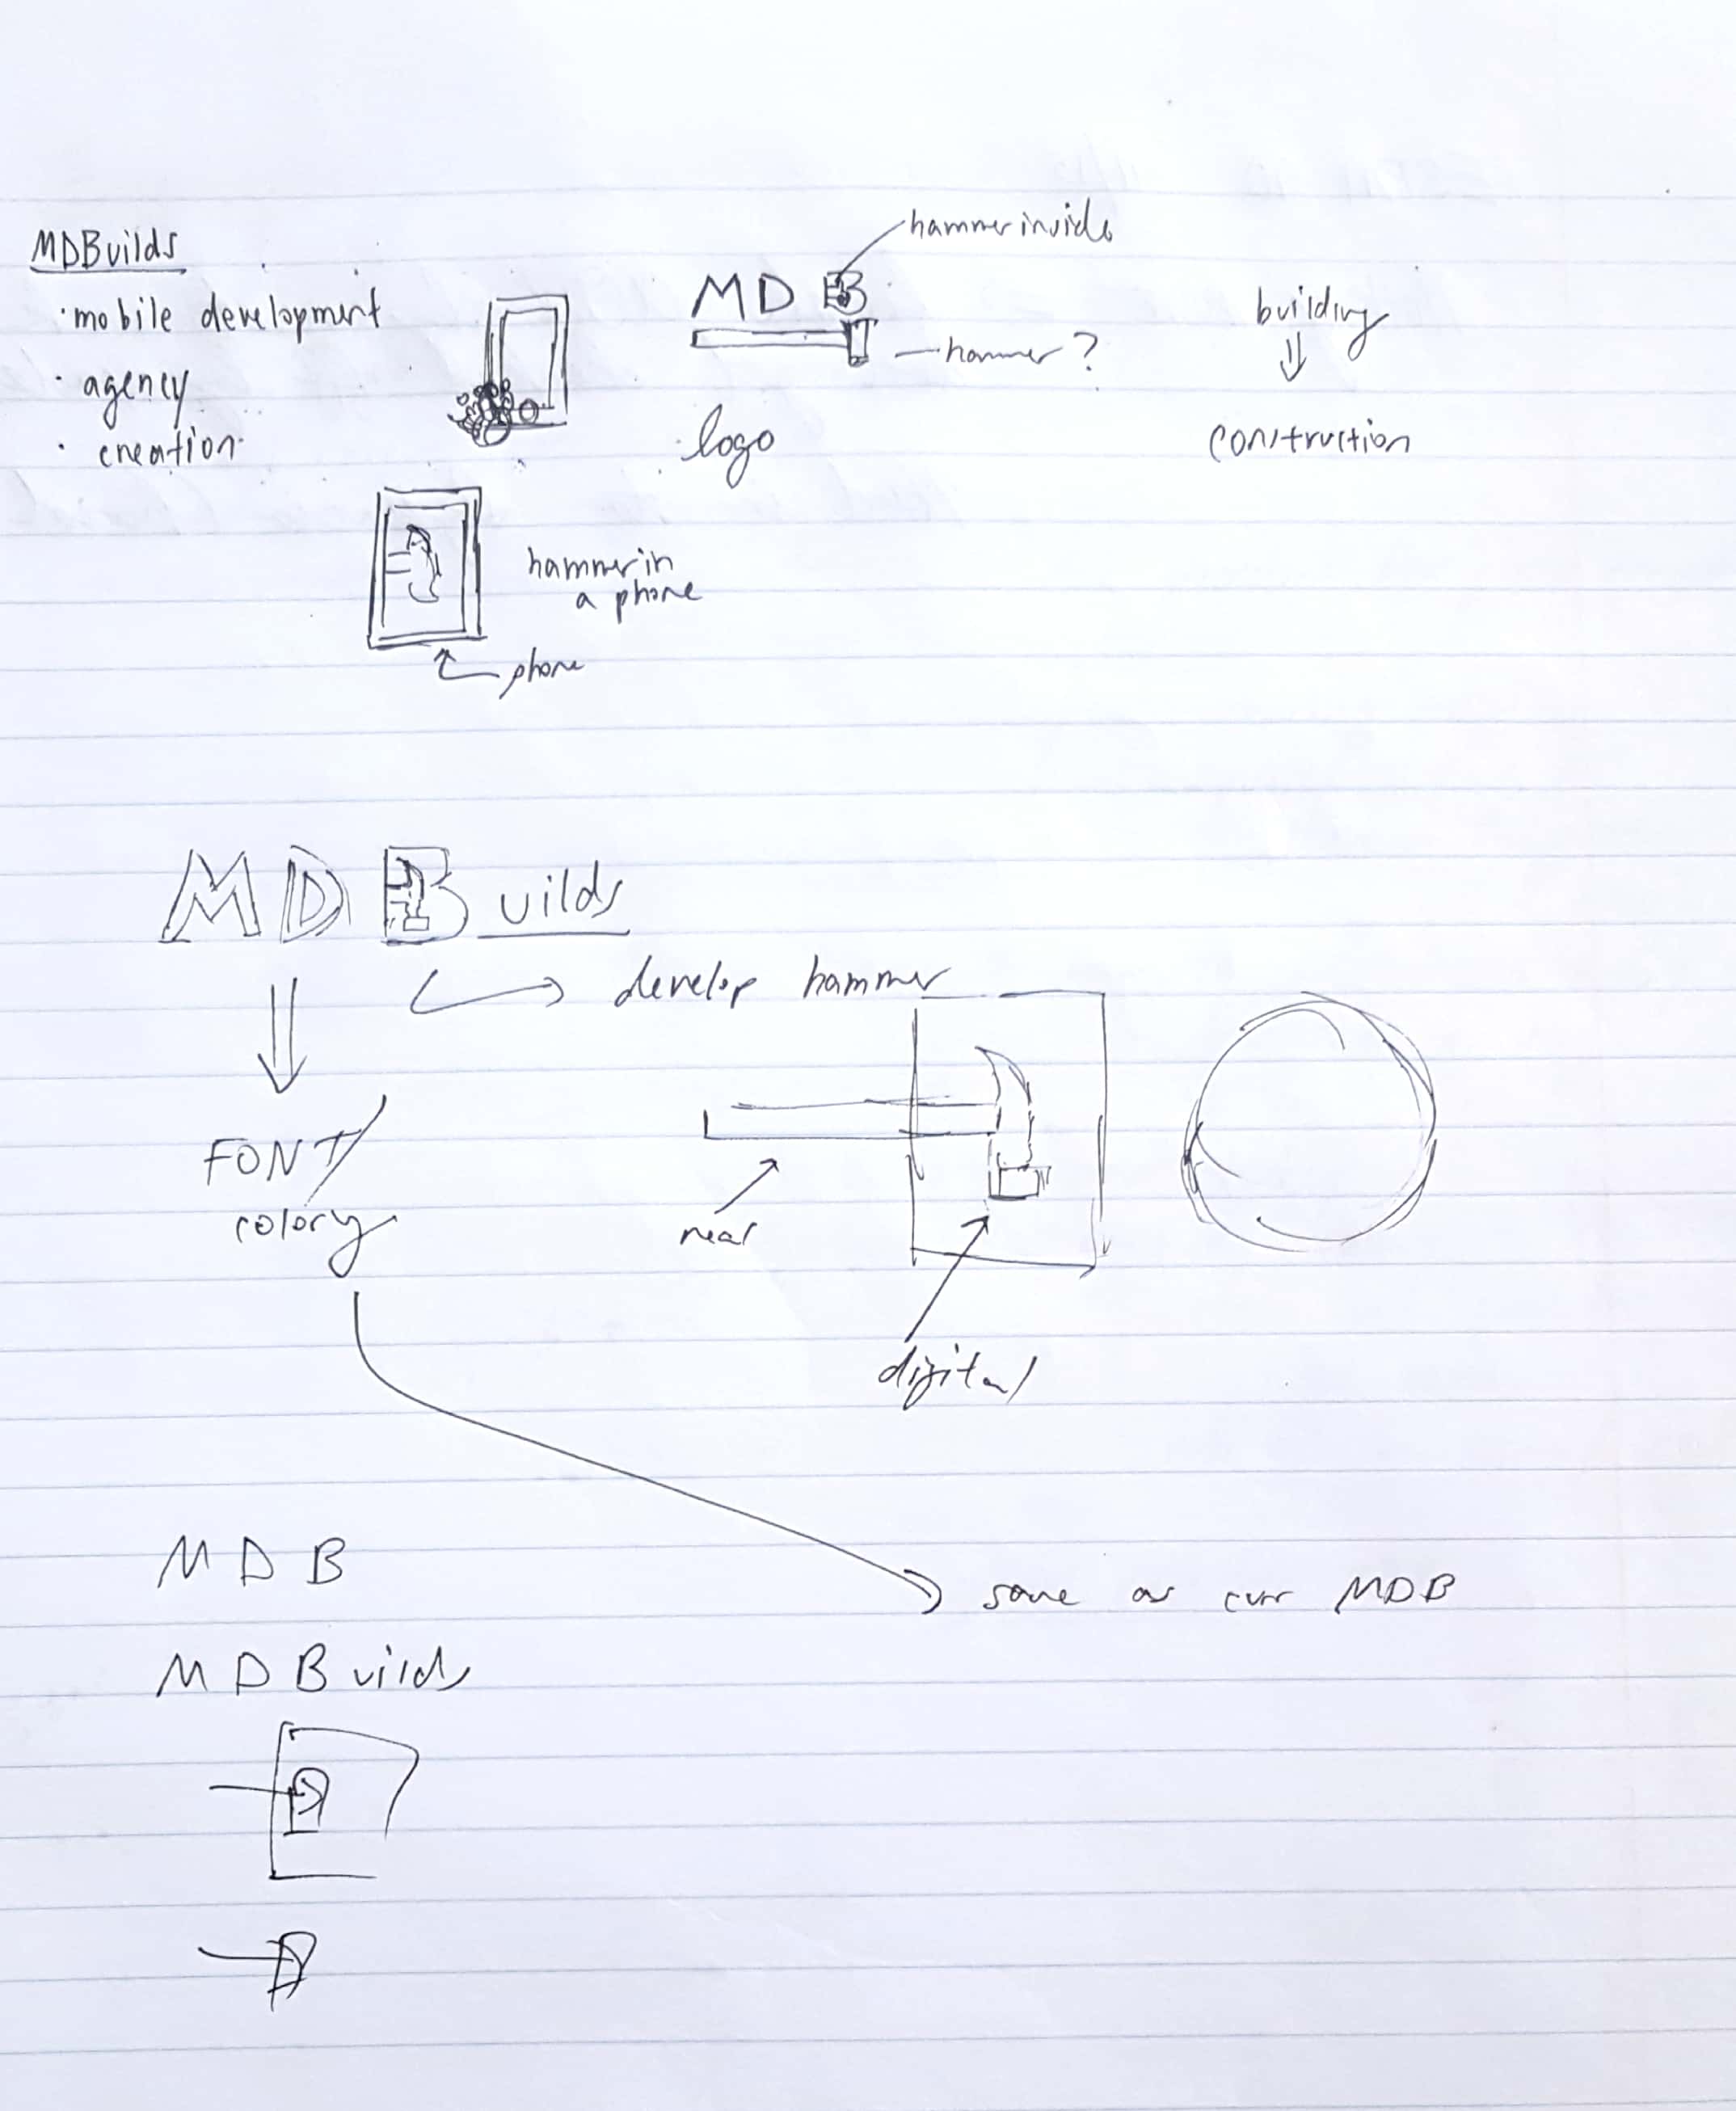 MDBuilds
· mobile development
· agency
· creation
hammer inside
MDB
hammer?
logo
building
construction
hammer in
a phone
phone
MDBuilds
develop hammer
FONT/
colory
real
digital
MDB
same as curr MDB
MDBuilds